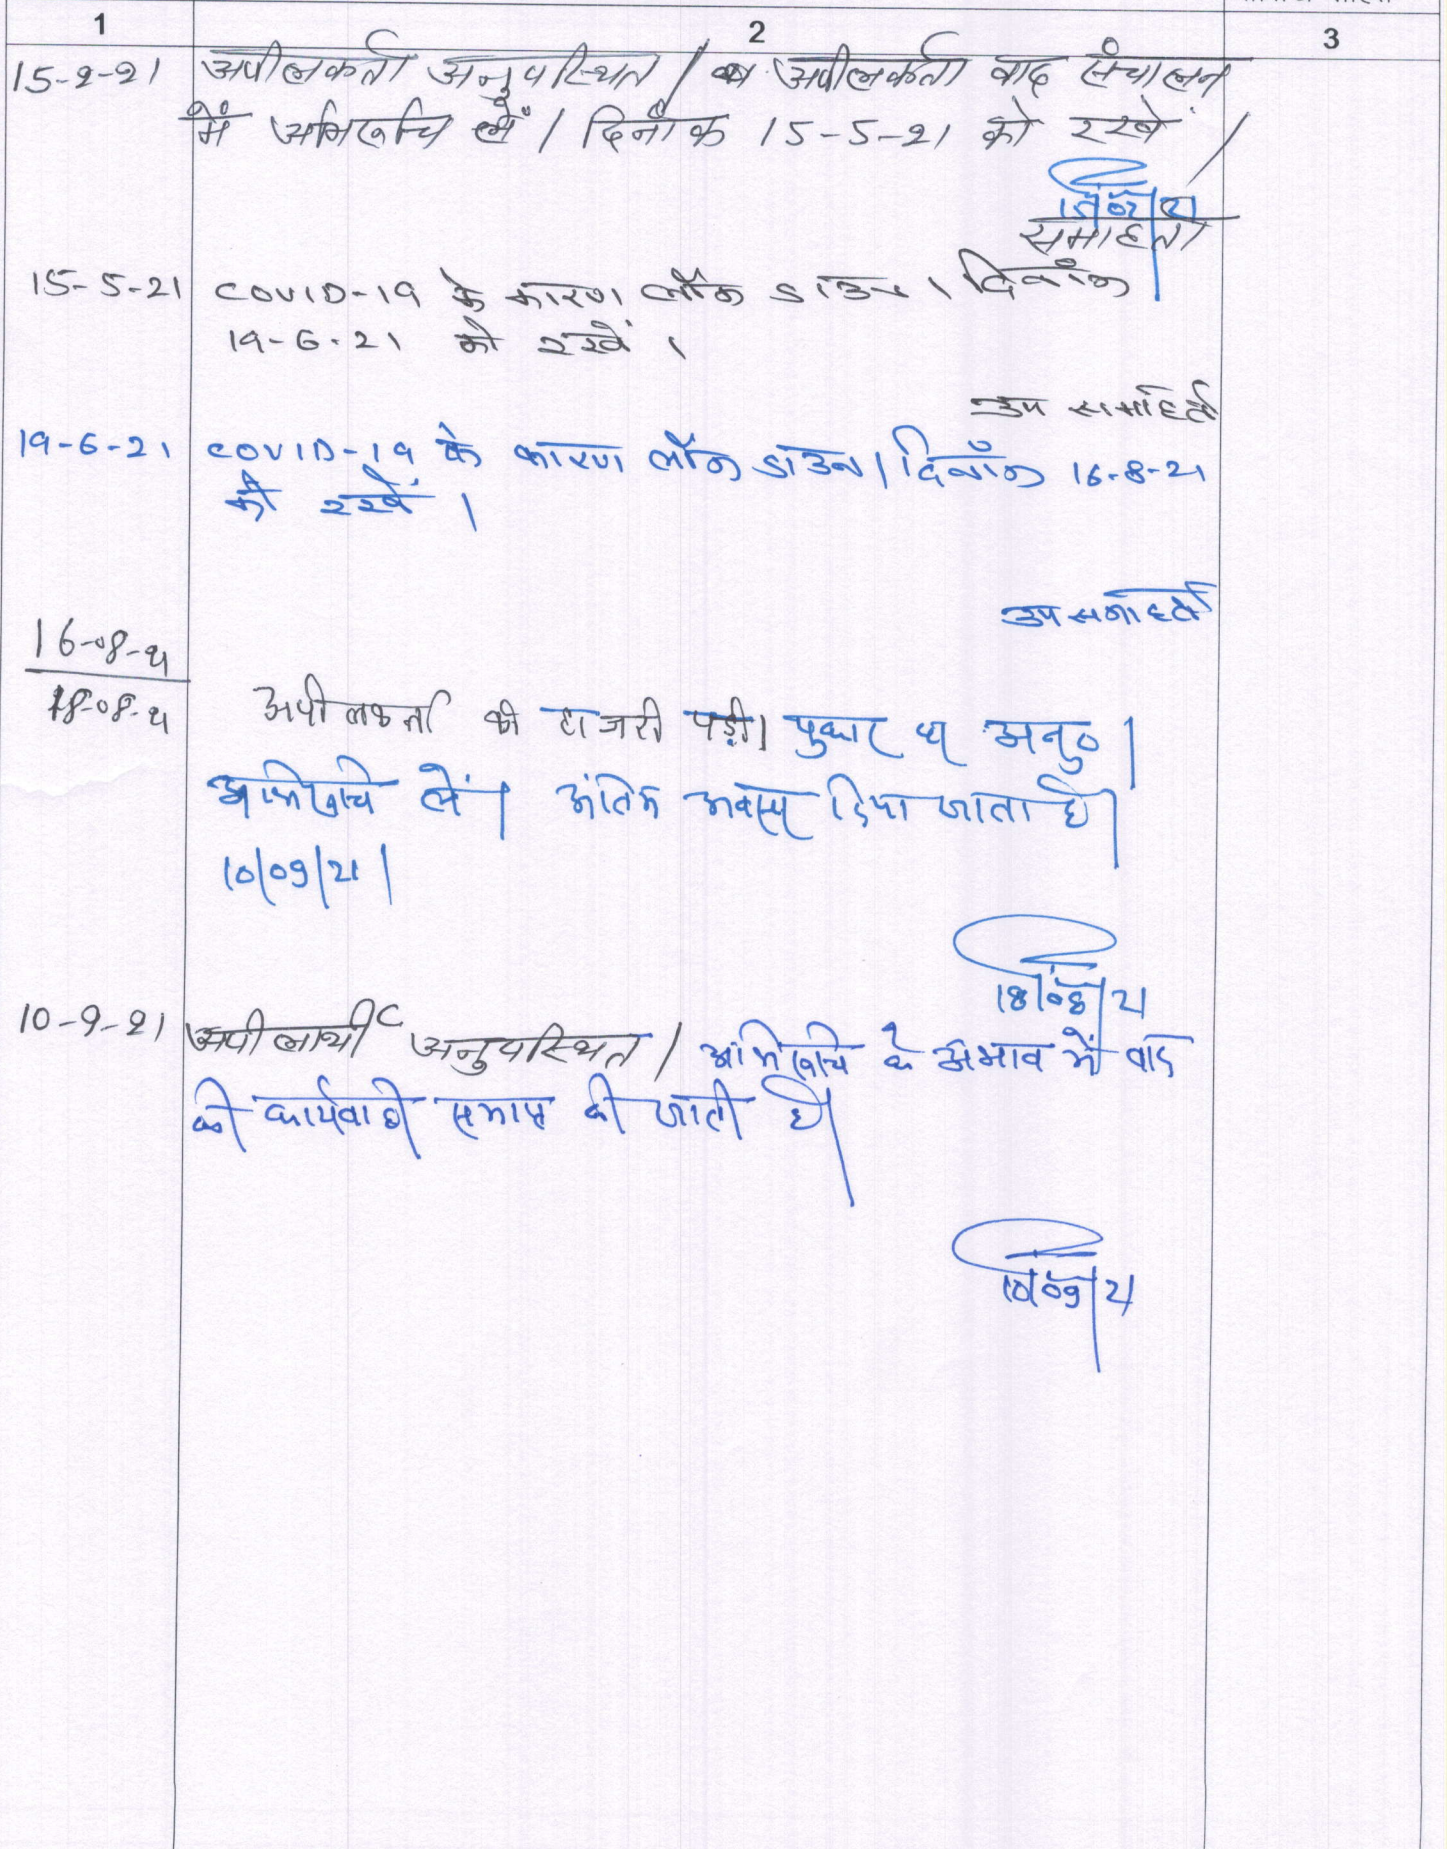 1 2 3
15-2-21 अपीलकर्ता अनुपस्थित / अपीलकर्ता वाद संचालन
में अभिरूचि लें / दिनाँक 15-5-21 को रखें /
समाहर्ता
15-5-21 COVID-19 के कारण लॉक डाउन । दिनाँक
19-6-21 को रखें ।
उप समाहर्ता
19-6-21 COVID-19 के कारण लॉक डाउन । दिनाँक 16-8-21
को रखें ।
उप समाहर्ता
16-08-21
18-08-21 अपीलकर्ता की हाजरी पड़ी। पुकार पर अनु० |
अभिरूचि लें | अंतिम अवसर दिया जाता है|
10/09/21 |
18/08/21
10-9-21 अपीलार्थी अनुपस्थित / अभिरूचि के अभाव में वाद
की कार्यवाही समाप्त की जाती है|
10/09/21